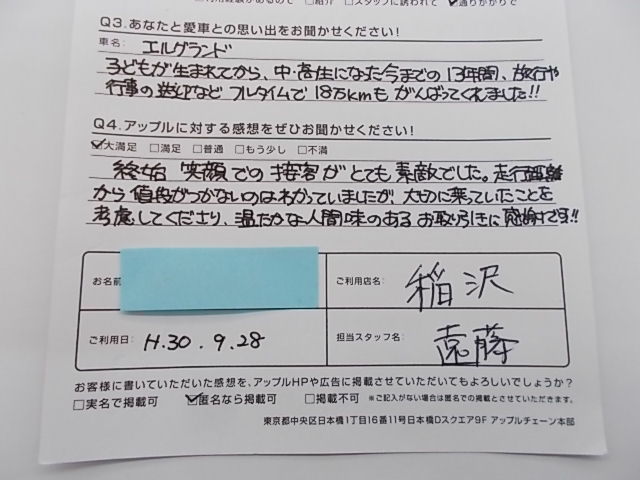 □紹介 □スタッフに誘われて ☑通りがかりで
Q3.あなたと愛車との思い出をお聞かせください!
車名: エルグランド
子どもが生まれてから、中・高生になった今までの13年間、旅行や
行事の送迎など フルタイムで 18万kmも がんばってくれました!!
Q4.アップルに対する感想をぜひお聞かせください!
☑大満足 □満足 □普通 □もう少し □不満
終始 笑顔での接客がとても素敵でした。走行距離
から値段がつかないのはわかっていましたが、大切に乗っていたことを
考慮してくださり、温たかな人間味のあるお取引きに感謝です!!
お名前
ご利用店名: 稲沢
ご利用日: H.30.9.28
担当スタッフ名: 遠藤
お客様に書いていただいた感想を、アップルHPや広告に掲載させていただいてもよろしいでしょうか?
□実名で掲載可 ☑匿名なら掲載可 □掲載不可 ※ご記入がない場合は匿名での掲載とさせていただきます。
東京都中央区日本橋1丁目16番11号日本橋Dスクエア9F アップルチェーン本部